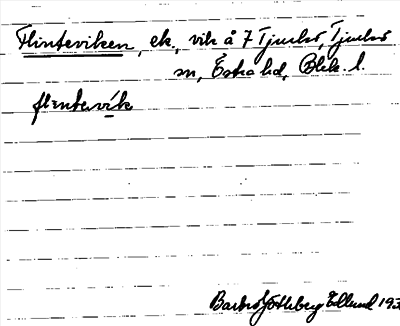 Flinteviken, ek., vik å 7 Tjurkö, Tjurkö
sn, Östra hd, Blek. l.
flɪntavi̱k
Barbro Götheberg Edlund 193